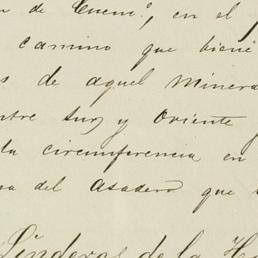 n de Enero, en el p
camino que biene
s de aquel Minera
ntre Sur y Oriente
la circunferencia en
na del Asadero que
Linderos de la H